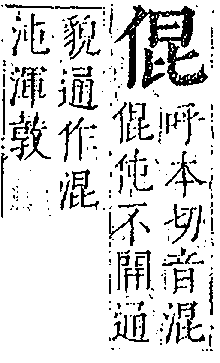 倱
呼本切音混
倱伅不開通
貌通作混
沌渾敦